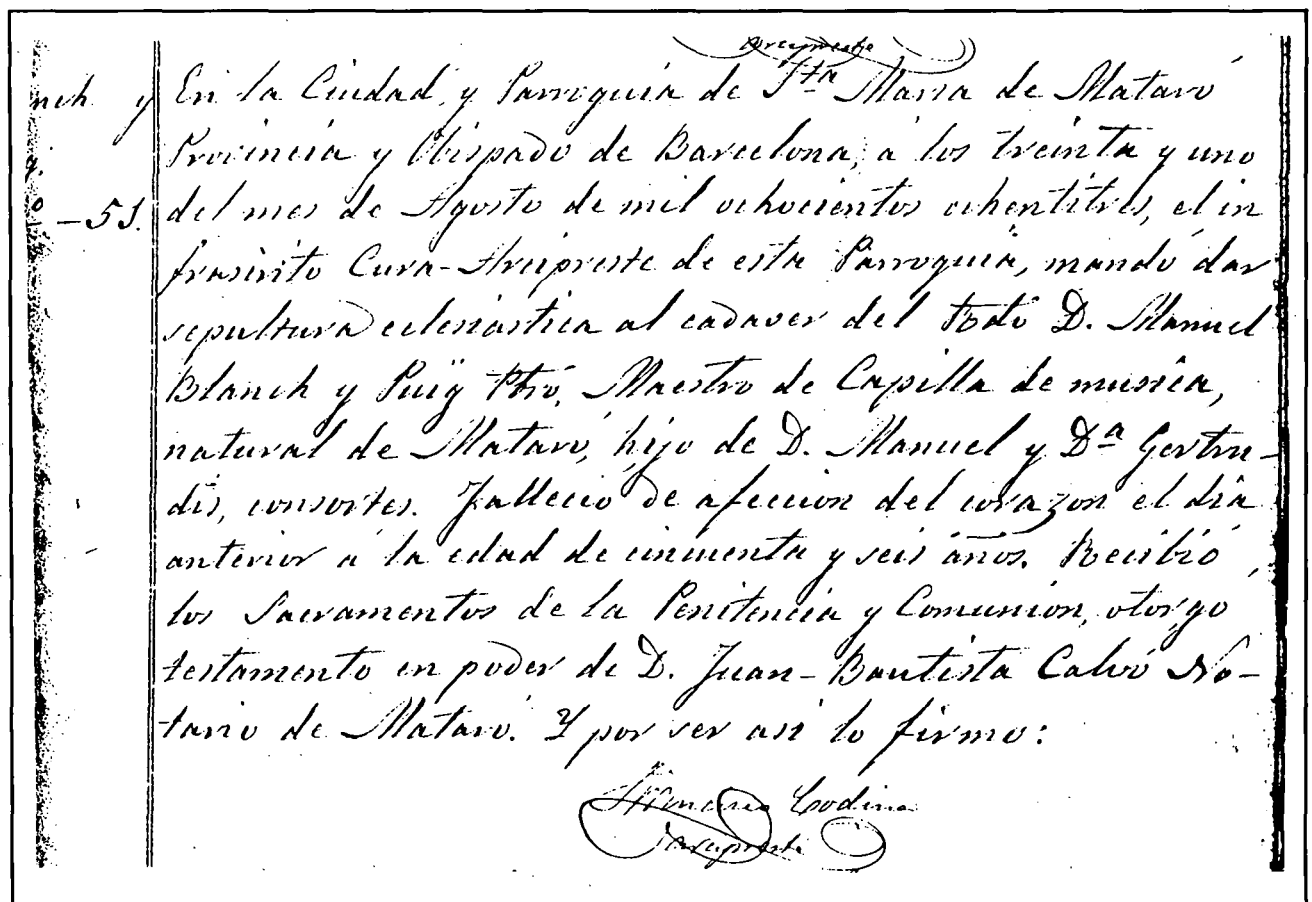 Arcipreste
nch y
g.
o - 51.
En la Ciudad, y Parroquia de Sta Maria de Mataró
Provincia y Obispado de Barcelona, á los treinta y uno
del mes de Agosto de mil ochocientos ochentitres, el in
frascrito Cura-Arcipreste de esta Parroquia, mandó dar
sepultura eclesiástica al cadaver del Rdo D. Manuel
Blanch y Puig Pbro, Maestro de Capilla de musica,
natural de Mataró, hijo de D. Manuel y Da Gertru-
dis, consortes. Falleció de afeccion del corazon el dia
anterior á la edad de cincuenta y seis años. Recibió
los Sacramentos de la Penitencia y Comunion, otorgó
testamento en poder de D. Juan-Bautista Calvó No-
tario de Mataró. Y por ser asi lo firmo:
Codina
Arcipreste